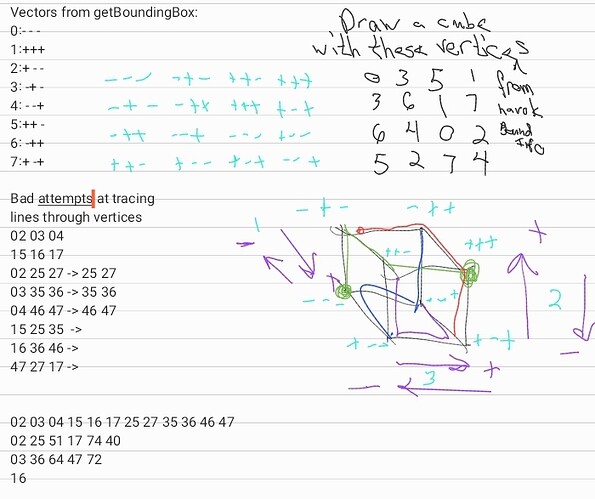 Vectors from getBoundingBox:
0:- - -
1:+++
2:+ - -
3: -+ -
4: - -+
5:++ -
6: -++
7:+ -+
Draw a cube
with these vertices
from
havok
Bound
Info
--- -+- ++- +++
0 3 5 1
-+- -++ +++ +-+
3 6 1 7
-++ --+ --- +--
6 4 0 2
++- +-- +-+ --+
5 2 7 4
Bad attempts at tracing
lines through vertices
02 03 04
15 16 17
02 25 27 -> 25 27
03 35 36 -> 35 36
04 46 47 -> 46 47
15 25 35 ->
16 36 46 ->
47 27 17 ->
-+- -++
1
- +
++- +++
+
--- --+
2
+-- +-+
-
3 +
-
02 03 04 15 16 17 25 27 35 36 46 47
02 25 51 17 74 40
03 36 64 47 72
16